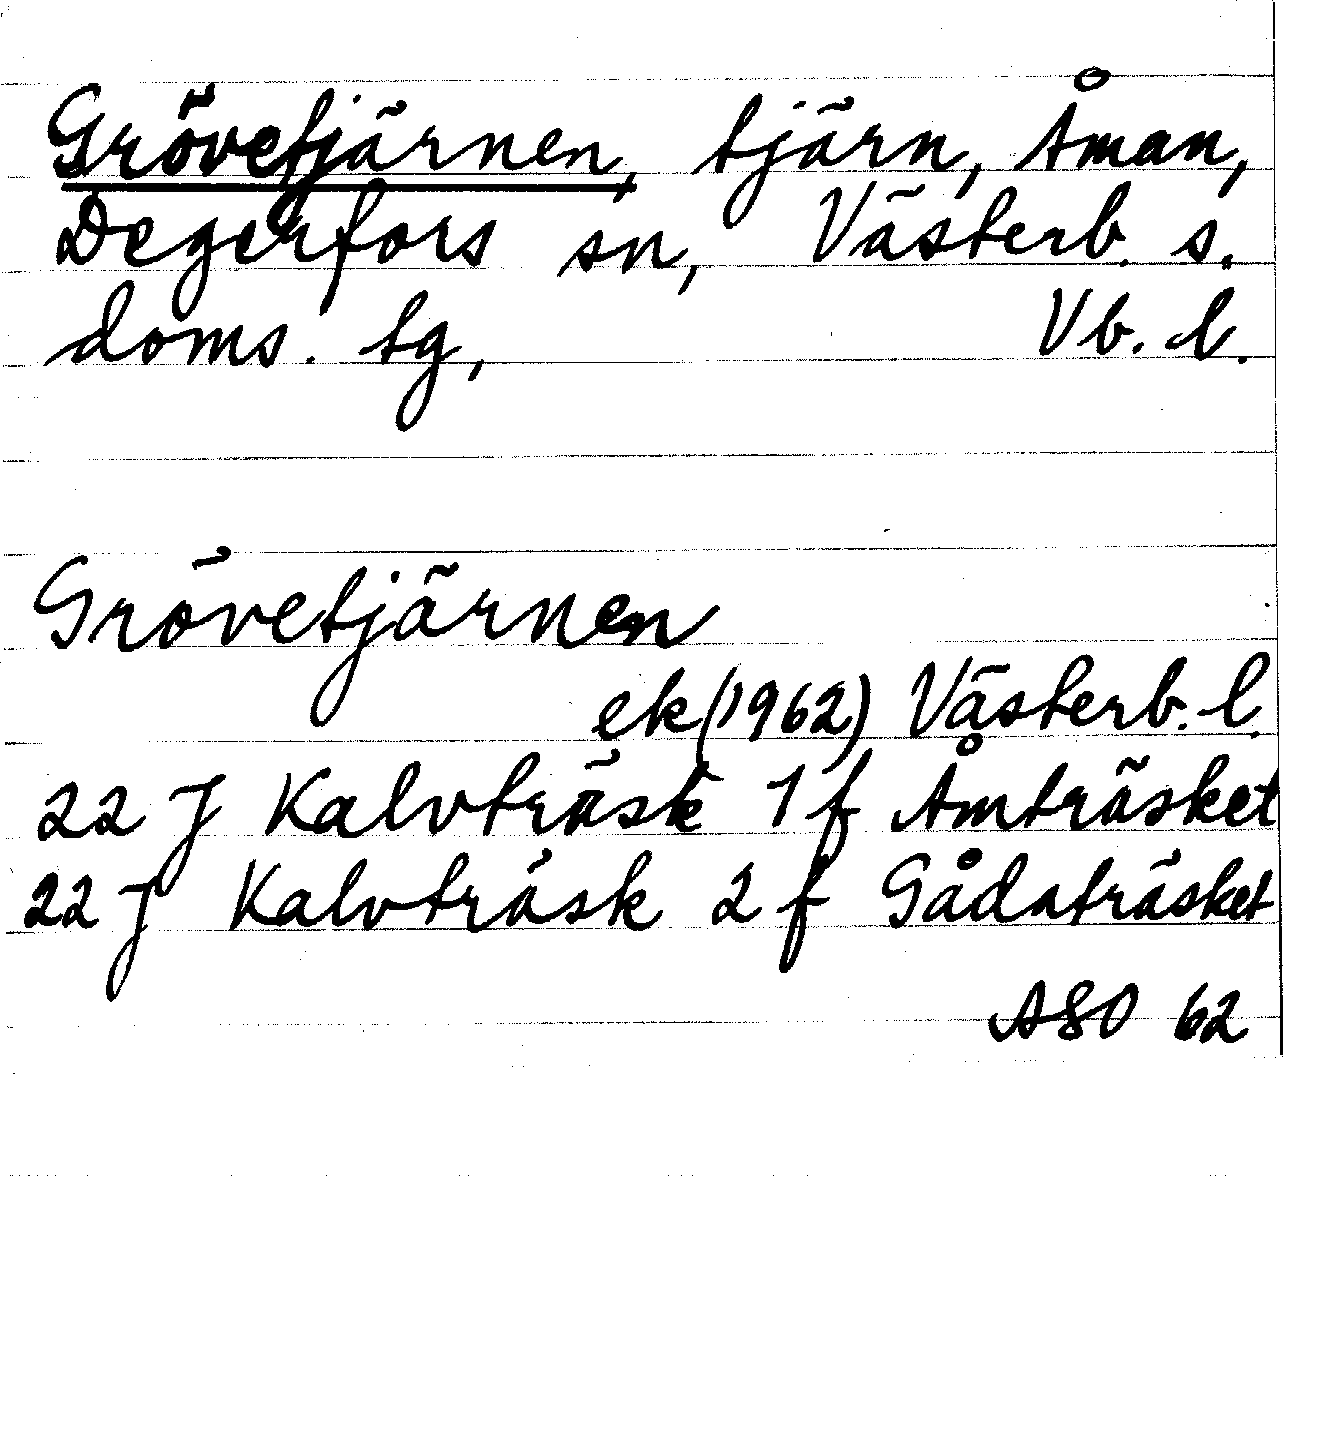 Grövetjärnen, tjärn, Åman,
Degerfors sn, Västerb. s.
doms. tg, Vb. l.
Grövetjärnen
ek (1962) Västerb. l.
22 J Kalvträsk 1 f Åmträsket
22 J Kalvträsk 2 f Gådaträsket
ASO 62